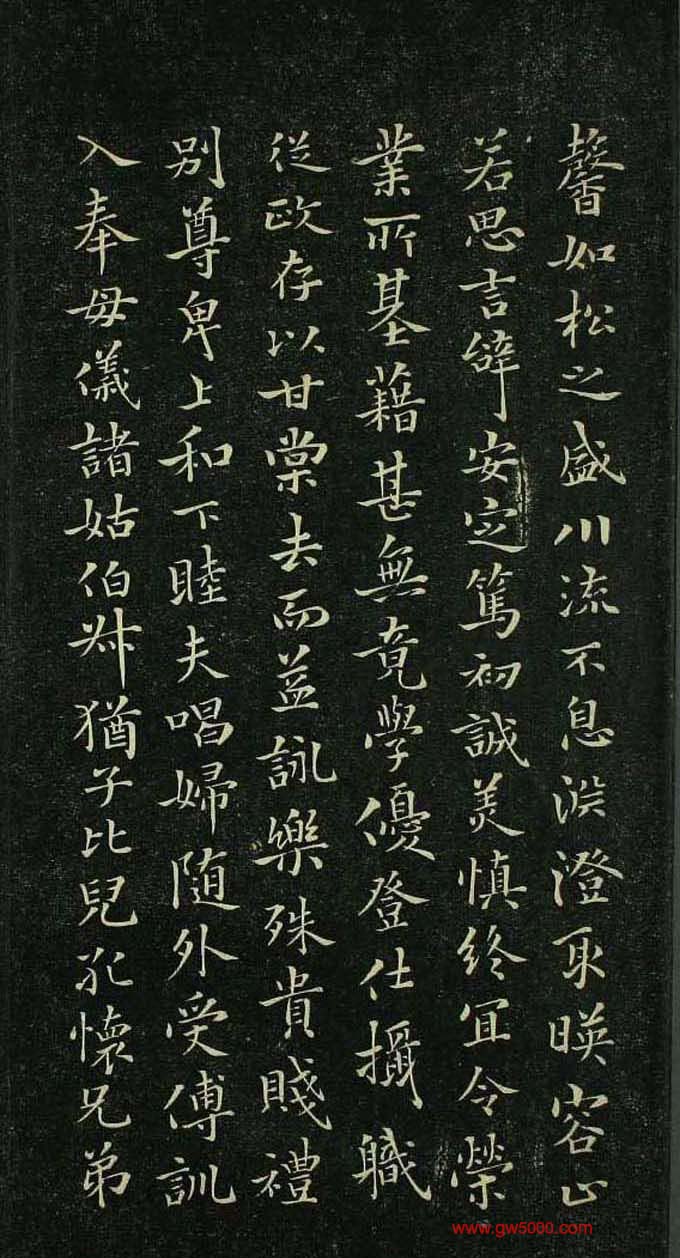 馨如松之盛川流不息淵澄取暎容止
若思言辭安定篤初誠美慎終宜令榮
業所基藉甚無竟學優登仕攝職
從政存以甘棠去而益詠樂殊貴賤禮
別尊卑上和下睦夫唱婦随外受傅訓
入奉母儀諸姑伯叔猶子比兒孔懷兄弟
www.gw5000.com